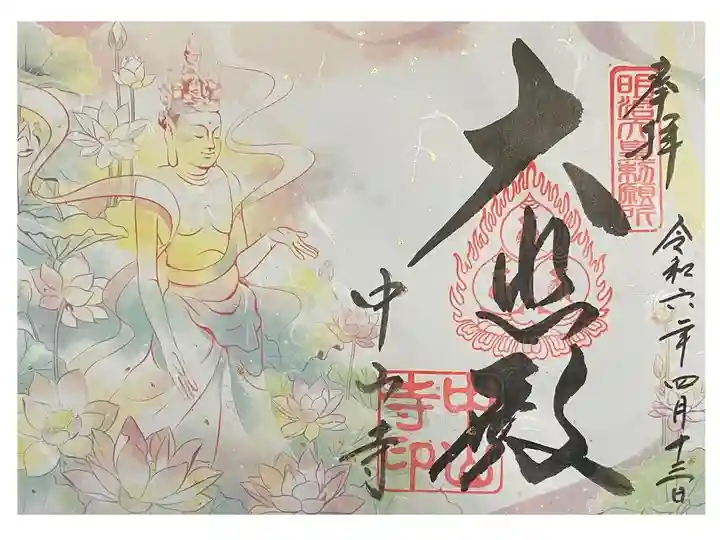 奉拝
明治天皇勅願所
令和六年四月十三日
大悲殿
中山寺
中山寺印